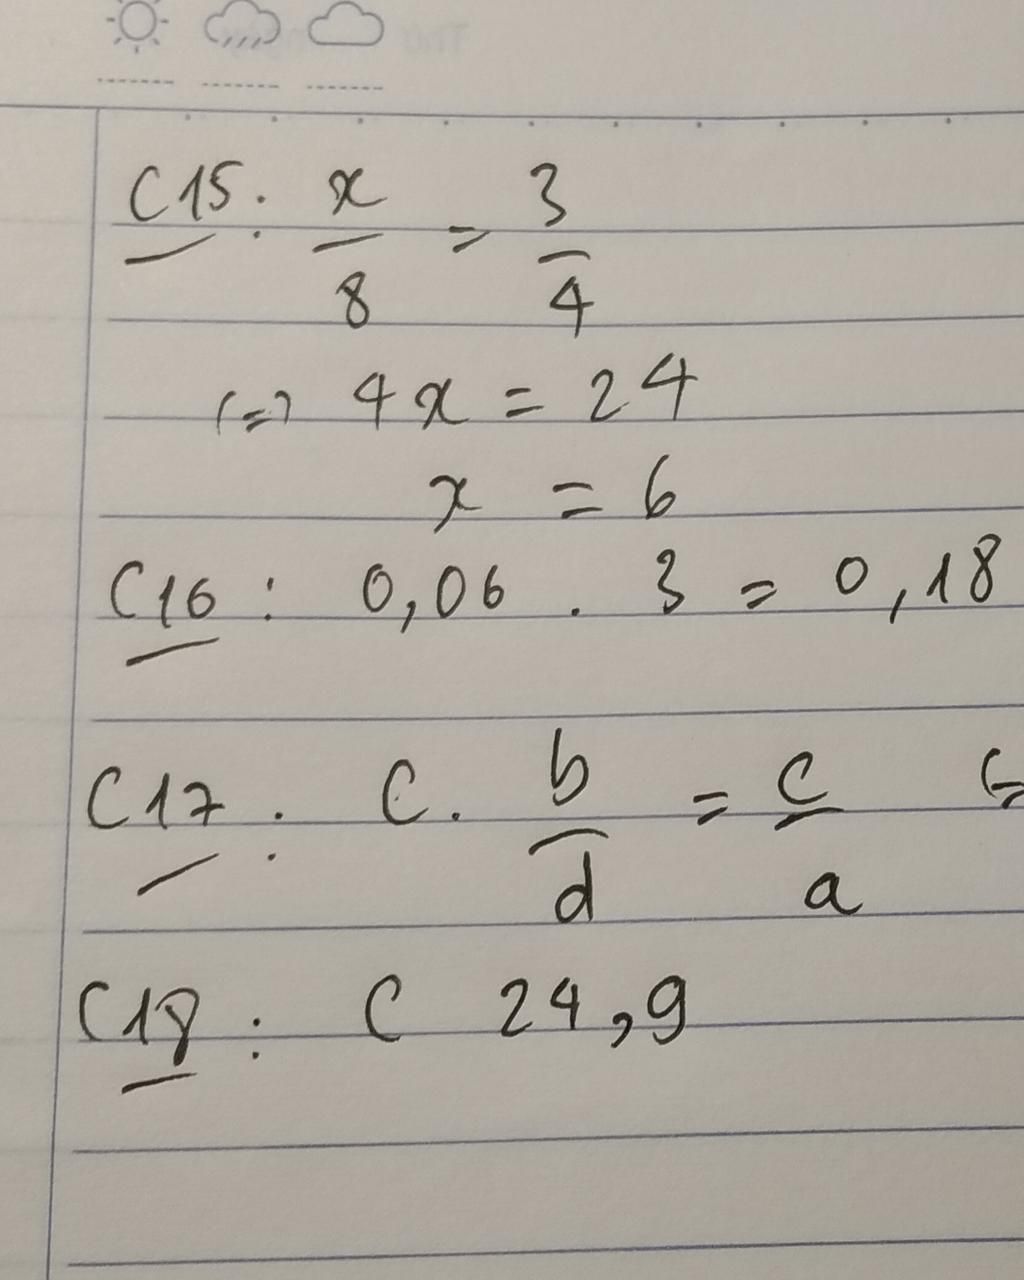 C15: x/8 = 3/4
(=) 4x = 24
x = 6
C16: 0,06 . 3 = 0,18
C17: C. b/d = c/a
C18: C 24,9